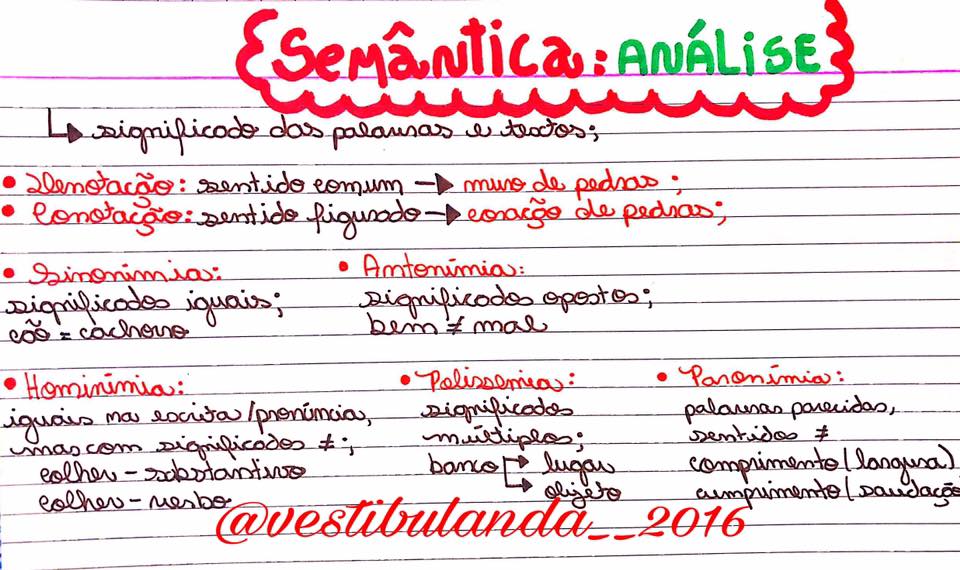 Semântica: ANÁLISE
significado das palavras e textos;
• Denotação: sentido comum → muro de pedras;
• Conotação: sentido figurado → coração de pedras;
• Sinonímia:
significados iguais;
cão = cachorro
• Antonímia:
significados opostos;
bem ≠ mal
• Hominímia:
iguais na escrita/pronúncia,
mas com significados ≠;
colher - substantivo
colher - verbo
• Polissemia:
significados
múltiplos;
banco → lugar
→ objeto
• Paronímia:
palavras parecidas,
sentidos ≠
comprimento (largura)
cumprimento (saudação
@vestibulanda__2016